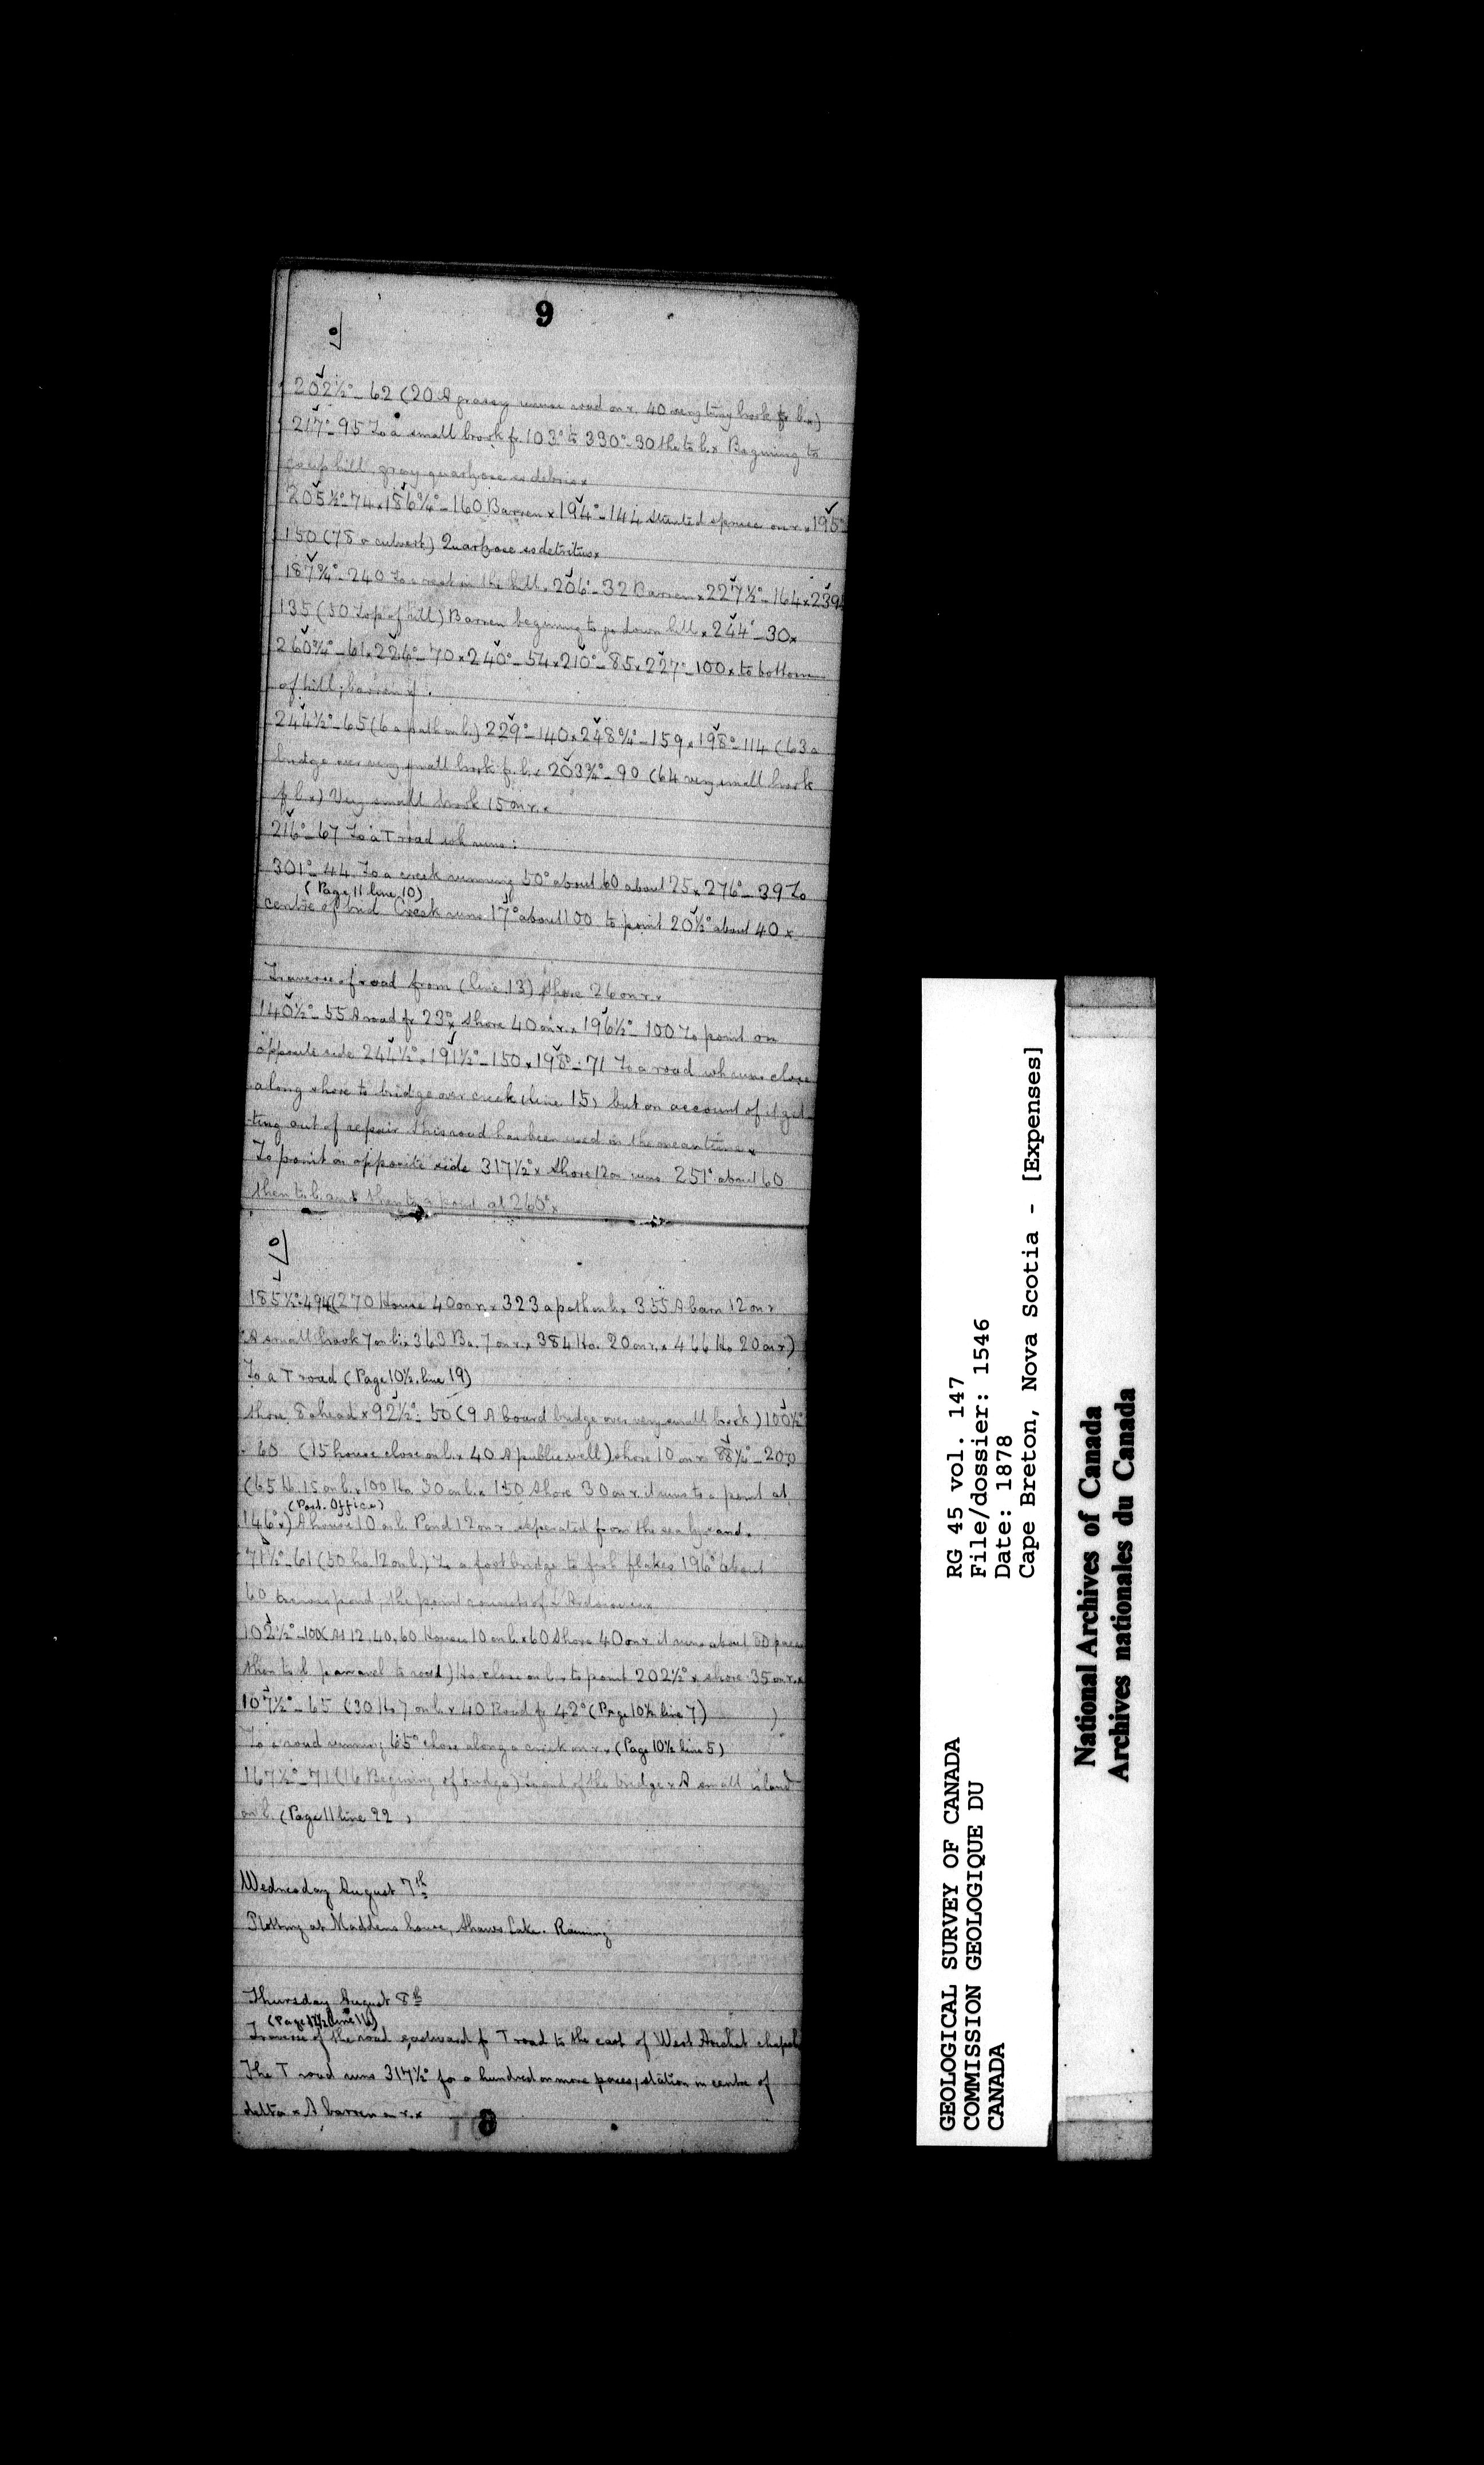 9
202½°-62 (20 A grassy road on r. 40 very tiny brook fr l.x)
217°-95 To a small brook fr. 103° to 330°-30 the to l.x Begining to
go up hill, gray quartzose ss debris x
205½°-74 x 186¾°-160 Barren x 194°-144 stunted spruce on r. x 195°
150 (78 a culvert) Quartzose ss detritus x
187¾°-240 To a crest in the hill. 206°-32 Barren x 227½°-164 x 239
135 (50 top of hill) Barren begining to go down hill x 244°-30 x
260¾°-61 x 226°-70 x 240°-54 x 210°-85 x 227°-100 x to bottom
of hill; barren
244½°-65 (6 a path on l.) 229°-140 x 248¾°-159 x 198°-114 (63 a
bridge over very small brook f. l. x 203¾°-90 (64 very small brook
f l.x) Very small brook 15 on r. x
216°-67 To a T road wh runs:
301°-44 To a creek running 50° about 60 about 25 x 276°-39 To
(Page 11 line 10)
centre of brid Creek runs 17° about 100 to point 20½° about 40 x
Traverse of road from (line 13) shore 26 on r. x
140½°-55 A road fr 23° x shore 40 on r. x 196½°-100 To point on
opposite side 244½° x 191½°-150 x 198°-71 To a road wh runs close
along shore to bridge over creek (line 15) but on account of it get-
-ting out of repair this road has been used in the meantime x
To point on opposite side 317½° x Shore 12 on runs 251° about 60
then to l. and then to a point at 260° x
185½°-494 (270 House 40 on r. x 323 a path on l. x 355 A barn 12 on r
A small brook 7 on l. x 363 Ba. 7 on r. x 384 Ho. 20 on r. x 466 Ho 20 on r)
To a T road (Page 10½ line 19)
shore 8 ahead x 92½°-50 (9 A board bridge over very small brook) 100½°
-60 (15 house close on l. x 40 A public well) shore 10 on r. 88½°-200
(65 Ho 15 on l. x 100 Ho 30 on l. x 150 Shore 30 on r. it runs to a point at
(Post. Office)
146° x) A house 10 on l. Pond 12 on r seperated from the sea by sand.
71½°-61 (50 ho. 12 on l.) To a foot bridge to fish flakes 196° about
60 across pond; the point consists of
102½°-100 (At 12, 40, 60 Houses 10 on l. x 60 Shore 40 on r it runs about 50 paces
then to l. parrarel to road) Ho close on l. to point 202½° x shore 35 on r. x
107½°-65 (30 Ho 7 on l. x 40 Road fr 42° (Page 10½ line 7) )
To a road running 65° close along a creek on r. x (Page 10½ line 5)
167½°-71 (16 Begining of bridge) To end of the bridge x A small island
on l. (Page 11 line 22 )
Wednesday August 7th
Plotting at Maddens house, Shaws Lake. Raining
Thursday August 8th
(Page 17½ line 16)
Traverse of the road eastward fr T road to the east of West Arichat chapel
The T road runs 317½° for a hundred or more paces; station in centre of
delta x A barren on r. x
GEOLOGICAL SURVEY OF CANADA
COMMISSION GEOLOGIQUE DU
CANADA
RG 45 vol. 147
File/dossier: 1546
Date: 1878
Cape Breton, Nova Scotia - [Expenses]
National Archives of Canada
Archives nationales du Canada